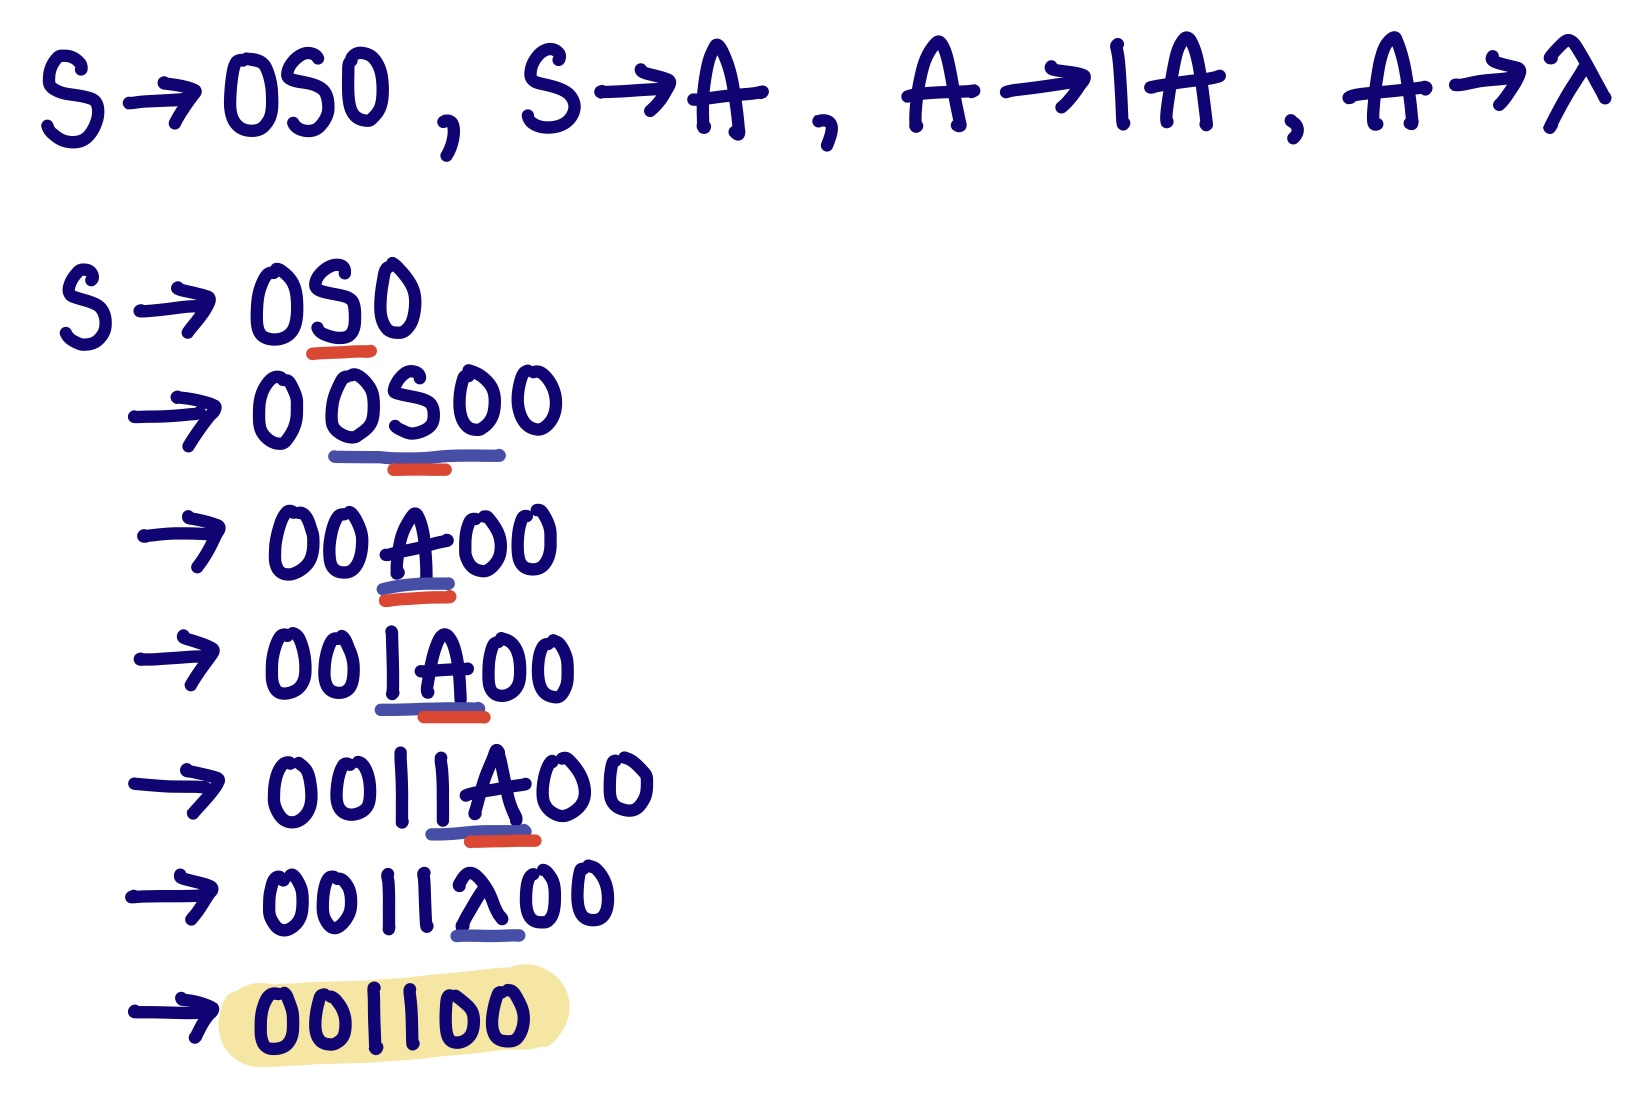 S→0S0 , S→A , A→1A , A→λ
S→0S0
→00S00
→00A00
→001A00
→0011A00
→0011λ00
→001100